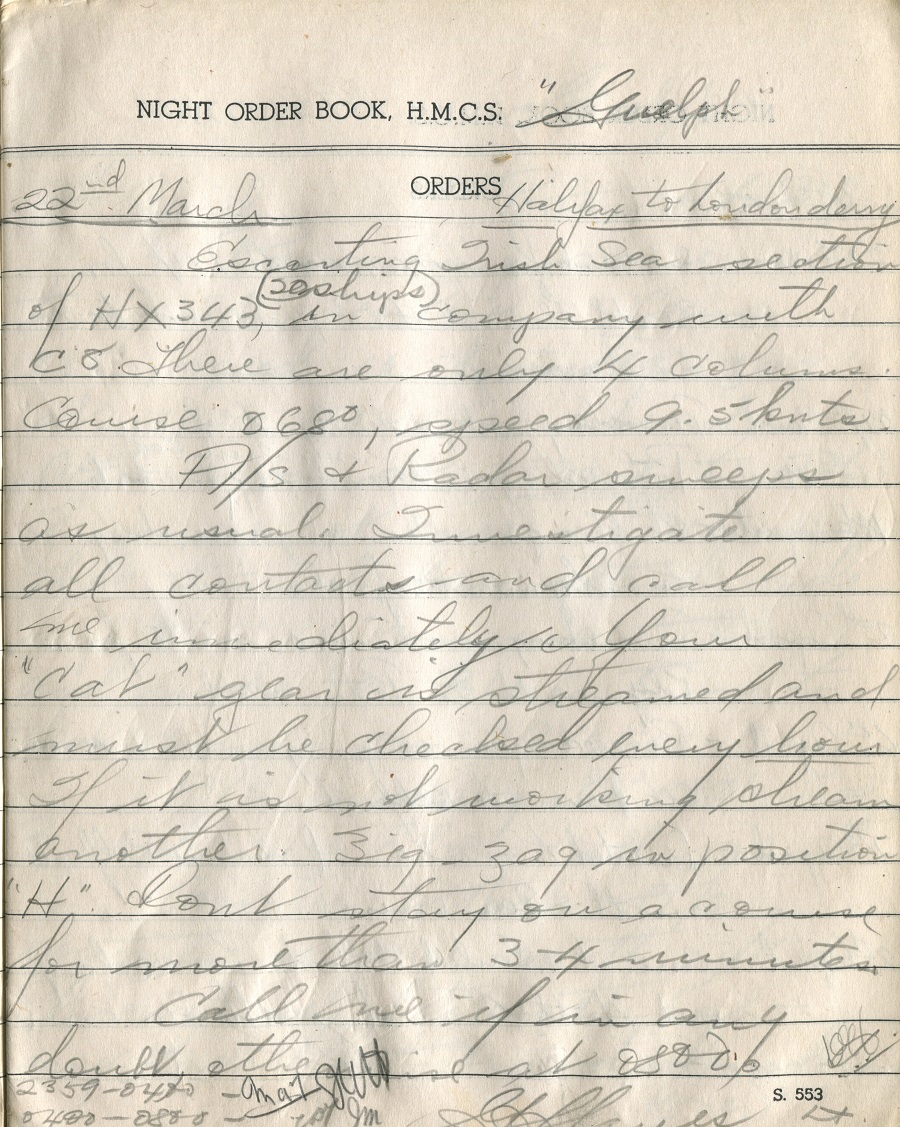 NIGHT ORDER BOOK, H.M.C.S. "Guelph"
ORDERS
22nd March Halifax to Londonderry
Escorting Irish Sea section
of HX343, (20 ships) in company with
C8. There are only 4 colums.
Course 068°, speed 9.5 knts.
A/S & Radar sweeps
as usual. Investigate
all contacts and call
me immediately. Your
"Cat" gear is streamed and
must be checked every hour
If it is not working stream
another. Zig-zag in position
"H". Dont stay on a course
for more than 3-4 minutes.
Call me if in any
doubt, otherwise at 0800.
2359-0400 -
0400-0800 -
S. 553